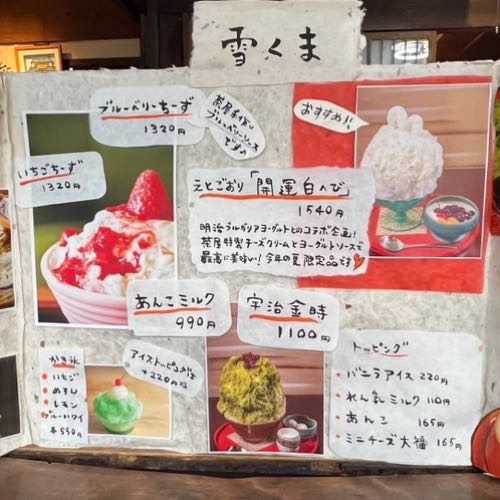 雪くま
ブルーベリーちーず
1320円
茶屋手作り
ブルーベリーソース
です♪
おすすめ!!
いちごちーず
1320円
えとごおり「開運白へび」
1540円
明治ブルガリアヨーグルトとのコラボ企画!
茶屋特製チーズクリームとヨーグルトソースで
最高に美味い!今年の夏限定品です
あんこミルク
990円
宇治金時
1100円
かき氷
・いちご
・めろん
・レモン
・ブルーハワイ
各550円
アイストッピングは
+220円
トッピング
・バニラアイス 220円
・れん乳ミルク 110円
・あんこ 165円
・ミニチーズ大福 165円